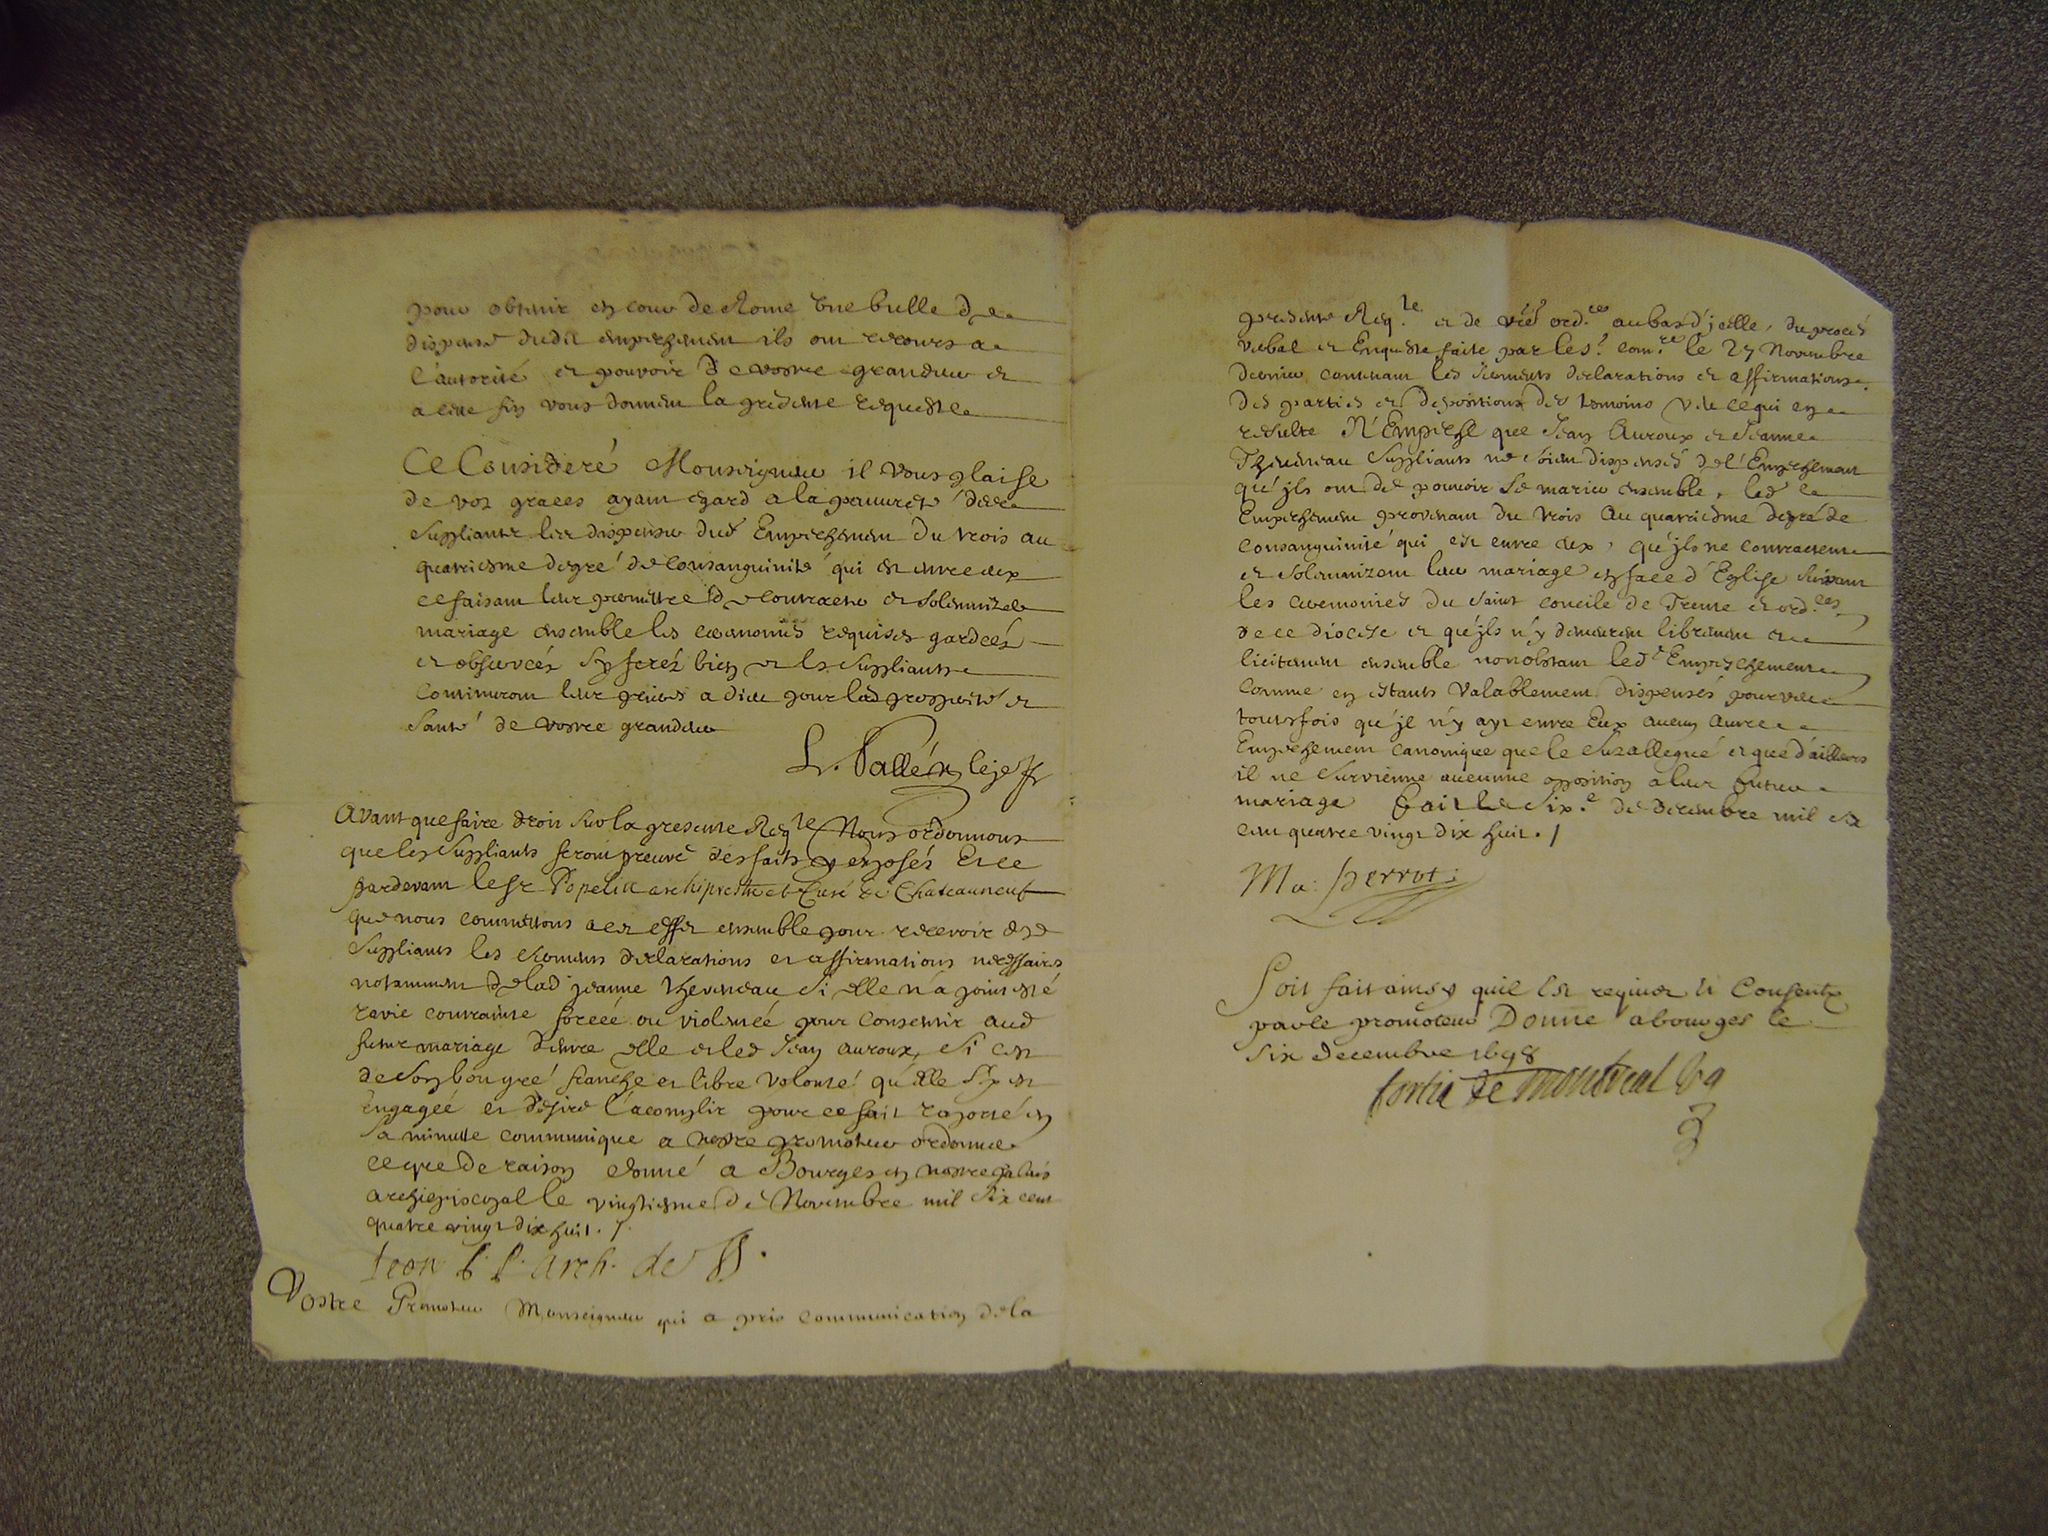 pour obtenir en cour de Rome une bulle de
dispense dudit empeschement ils ont recours a
l'autorité et pouvoir de vostre grandeur et
a cette fin vous donnent la presente requeste
Ce Consideré Monseigneur il vous plaise
de vos graces ayant egard a la pauvreté des
suppliants les dispenser dud Empeschement du trois au
quatriesme degré de consanguinité qui est entre eux
ce faisant leur permettre de contracter et solemnizer
mariage ensemble les ceremonies requises gardeés
et observeés sy ferés bien et les suppliants
continueront leur prieres a dieu pour la prosperité et
santé de vostre grandeur
Avant que faire droit sur la presente Reqte Nous ordonnons
que les suppliants feront preuve des faits y exposés Et ce
pardevant le sr Popelin archiprestre et Curé de Chateauneuf
que nous commettons a cet effet ensemble pour recevoir des
suppliants les serments declarations et affirmations necessaires
notamment de lad jeanne theveneau si elle n'a point esté
ravie contrainte forceé ou violenteé pour consentir aud
futur mariage d'entre elle et led Jean auroux, si c'est
de son bon gré franche et libre volonté qu'elle s'y est
engageé et desire l'acomplir pour ce fait raporté en
sa minutte communiqué a nostre promoteur ordonner
ce que de raison donné a Bourges en nostre palais
archiepiscopal le vingtiesme de Novembre mil six cent
quatre vingt dix huit. /.
Leon P. P. arch. de B.
Vostre Promoteur Monseigneur qui a pris communication de la
presente Reqte et de vre ordce au bas d'jcelle, du procés
verbal et Enqueste faite par led. comre le 27 Novembre
dernier contenant les serments declarations et affirmations
des parties et depositions des temoins veu ce qui en
resulte N'Empesche que Jean Auroux et Jeanne
Theveneau suppliants ne soient dispensés de l'Empeschement
qu'jls ont de pouvoir se marier ensemble, led
Empeschement provenant du trois au quatriesme degré de
consanguinité qui est entre eux, qu'jls ne contractent
et solemnizent leur mariage en face d'Eglise suivant
les ceremonies du saint concile de Trente et ordces
de ce diocese et qu'jls n'y demeurent librement et
licitement ensemble nonobstant led Empeschement
comme en estants valablement dispensés pourveu
toutesfois qu'jl n'y ayt entre Eux aucun autre
Empeschement canonique que le susallegué et que d'ailleurs
il ne survienne aucunne opposition a leur futur
mariage Fait le six.e de decembre mil six
cent quatre vingt dix huit. /
Ma: perrot
Soit fait ainsy quil est requies et Consenty
par le promoteur Donne a bourges le
six decembre 1698
fortia de montreal vg